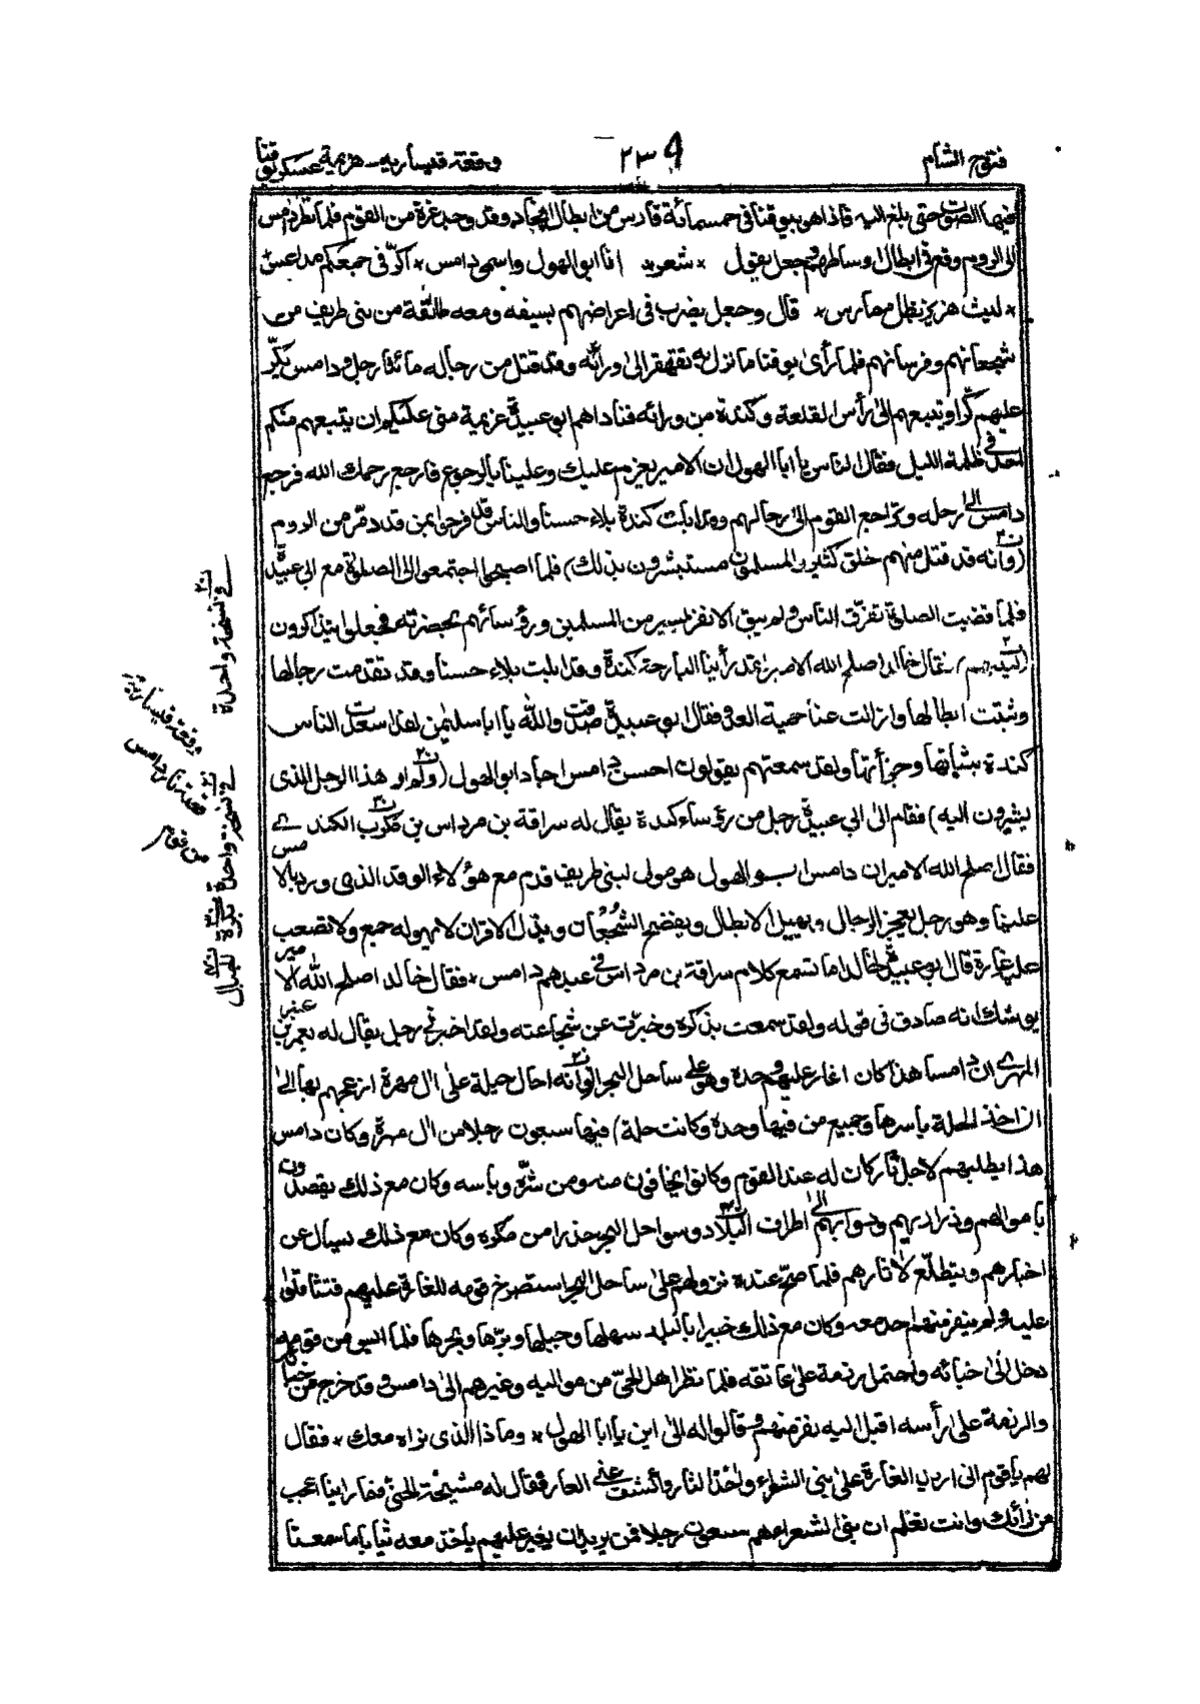 فتوح الشام
٢٣٩
وقعة قيسارية هزيمة عسكر يوقنا
فيها الصوت حتى بلغ اليه فاذا هو بيوقنا فى خمسمائة فارس من ابطال الانجاد وقد وجد غرة من القوم فلما نظر دامس
الى الروم وقع فى ابطال اوساطهم وجعل يقول * شعر * انا ابو الهول واسمى دامس * اكرّ فى جمعكم مداعس
* ليث هزبر بطل ممارس * قال وجعل يضرب فى اعراضهم بسيفه ومعه طائفة من بنى طريف من
شجعانهم وفرسانهم فلما رأى يوقنا ما نزل به تقهقر الى ورائه وقد قتل من رجاله مائتا رجل ودامس يكرّ
عليهم كرّا ويتبعهم الى رأس القلعة وكندة من ورائه فناداهم ابو عبيدة عزيمة منى عليكم ان يتبعهم منكم
احد فى ظلمة الليل فقال الناس يا ابا الهول ان الامير يعزم عليك وعلينا بالرجوع فارجع رحمك الله فرجع
دامس الى رحله وتراجع القوم الى رحالهم وقد ابلت كندة بلاء حسنا والناس قد فرحوا بمن قد دمّر من الروم
(وانه قد قتل منهم خلق كثير والمسلمون مستبشرون بذلك) فلما اصبحوا اجتمعوا الى الصلوة مع ابى عبيدة
فلما قضيت الصلوة تفرّق الناس ولم يبق الا نفر يسير من المسلمين ورؤسائهم بحضرته فجعلوا يتذاكرون
فقال خالد اصلح الله الامير لقد رأينا البارحة كندة وقد ابلت بلاء حسنا وقد تقدمت رجالها
وثبتت ابطالها وازالت عنا حمية العدو فقال ابو عبيدة صدقت والله يا ابا سليمن لقد اسعدت الناس
كندة بثباتها وجرأتها ولقد سمعتهم يقولون احسن دامس اجاد ابو الهول (ولم ار هذا الرجل الذى
يشيرون اليه) فقام الى ابى عبيدة رجل من رؤساء كندة يقال له سراقة بن مرداس بن مكرب الكندى
فقال اصلح الله الامير ان دامس ابو الهول هو مولى لبنى طريف قدم مع هؤلاء الوفد الذى ورد بالامس
علينا وهو رجل يعجز الرجال ويهيل الابطال ويفضح الشجعان ويذل الاقران لا يهوله جمع ولا تصعب
عليه غارة قال ابو عبيدة لخالد اما تسمع كلام سراقة بن مرداس فى عبدهم دامس * فقال خالد اصلح الله الامير
يوشك انه صادق فى قوله ولقد سمعت بذكره وخبرت عن شجاعته ولقد اخبرنى رجل يقال له
المهرى ان دامسا هذا كان اغار عليهم وحده وهو على ساحل البحر (وانه احال حيلة على ال مهرة ازعجهم بها الى
ان اخذ الحلة باسرها وجميع من فيها وحده وكانت حلة) فيها سبعون رجلا من ال مهرة وكان دامس
هذا يطلبهم لاجل ثار كان له عند القوم وكانوا يخافون منه ومن شرّه وبأسه وكان مع ذلك يقصدون
باموالهم وذراريهم ودوابهم الى اطراف البلاد وسواحل البحر حذرا من مكره وكان مع ذلك يسال عن
اخبارهم ويتطلّع لاثارهم فلما صح عنده نزولهم على ساحل البحر استصرخ قومه للغارة عليهم فتثاقلوا
عليه ولم ينفر منهم احد معه وكان مع ذلك خبيرا بالبلد سهلها وجبلها وبرّها وبحرها فلما ايس من قومه
دخل الى خبائه واحتمل رزمة على عاتقه فلما نظر اهل الحىّ من مواليه وغيرهم الى دامس وقد خرج من خبائهم
والرزمة على رأسه اقبل اليه نفر منهم وقالوا له الى اين يا ابا الهول * وما ذا الذى نراه معك * فقال
لهم يا قوم انى اريد الغارة على بنى الشعراء واخذ الثار واكشف عنى العار فقال له مشيخة الحىّ فما راينا اعجب
من رائك وانت تعلم ان بنى الشعراء هم سبعون رجلا فمن يريد ان يغير عليهم ياخذ معه ثيابا ما سمعنا
فى نسخة واحدة
وقعة قيسارية
قصة دامس
من قومه
فى نسخة واحدة